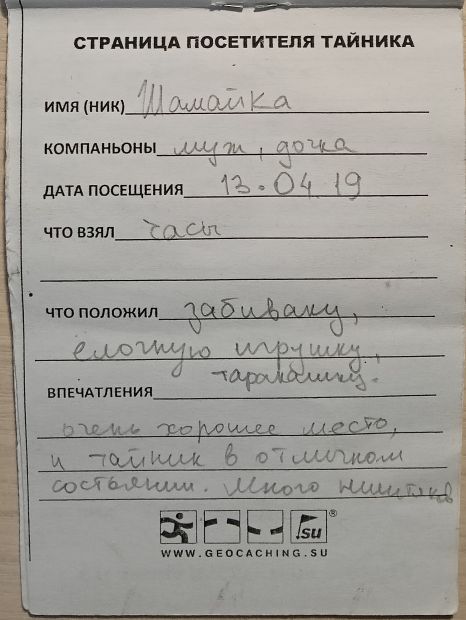 СТРАНИЦА ПОСЕТИТЕЛЯ ТАЙНИКА
ИМЯ (НИК) Шамайка
КОМПАНЬОНЫ муж, дочка
ДАТА ПОСЕЩЕНИЯ 13.04.19
ЧТО ВЗЯЛ часы
ЧТО ПОЛОЖИЛ забиваку,
ёлочную игрушку,
таракашку.
ВПЕЧАТЛЕНИЯ
очень хорошее место,
и тайник в отличном
состоянии. Много ништяков
.su ®
WWW.GEOCACHING.SU